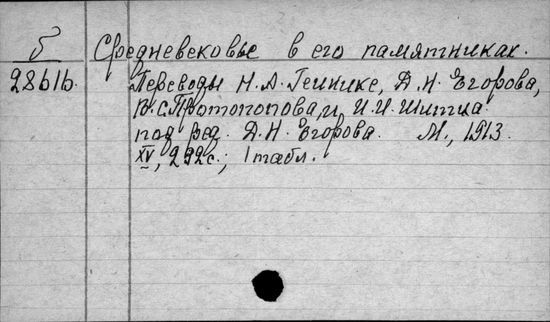 Б Средневековье в его памятниках.
28616. Переводы Н. А. Гейнике, Д. Н. Егорова,
В. С. Протопопова, и И. И. Шитца
под ред. Д. Н. Егорова. М., 1913.
XV, 292 с.; 1 табл.